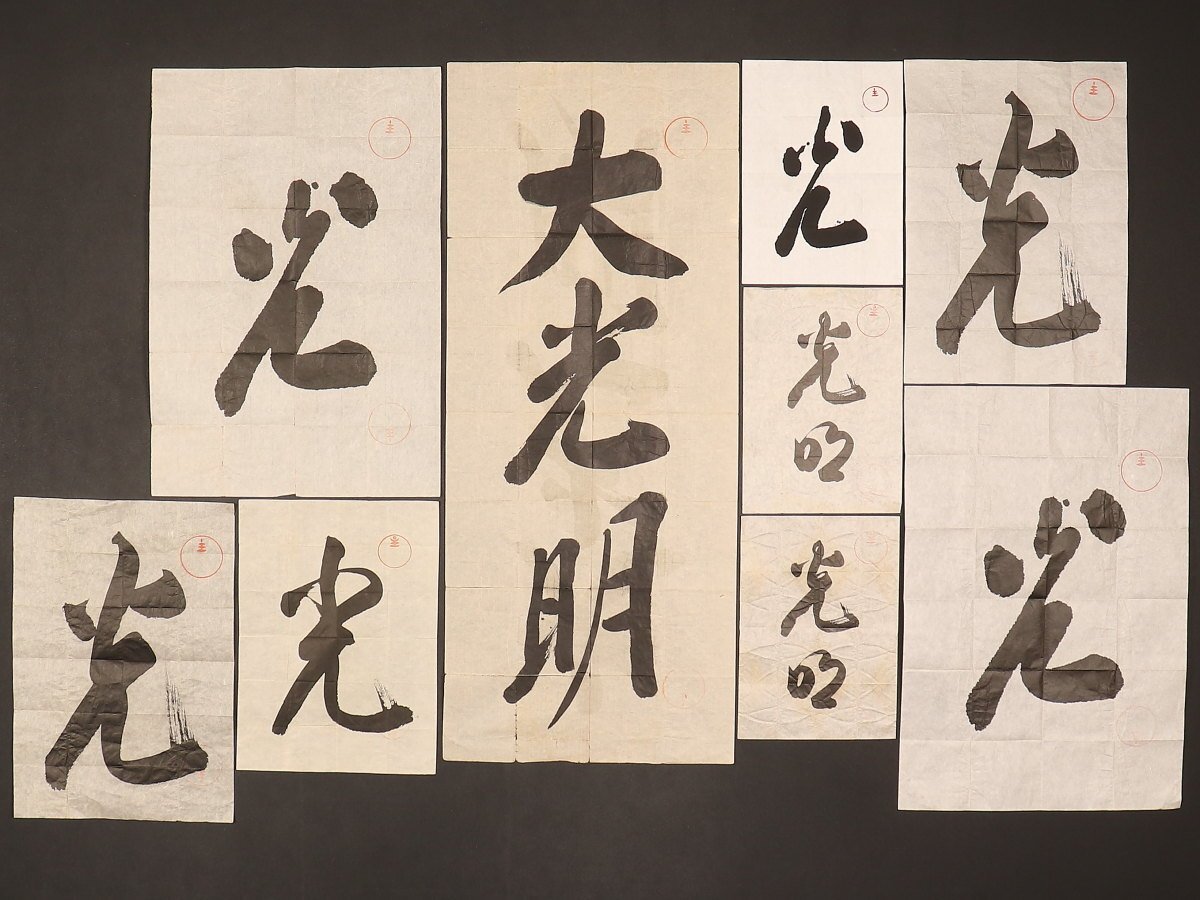 光
大光明
光
光
光明
光
光
光明
光